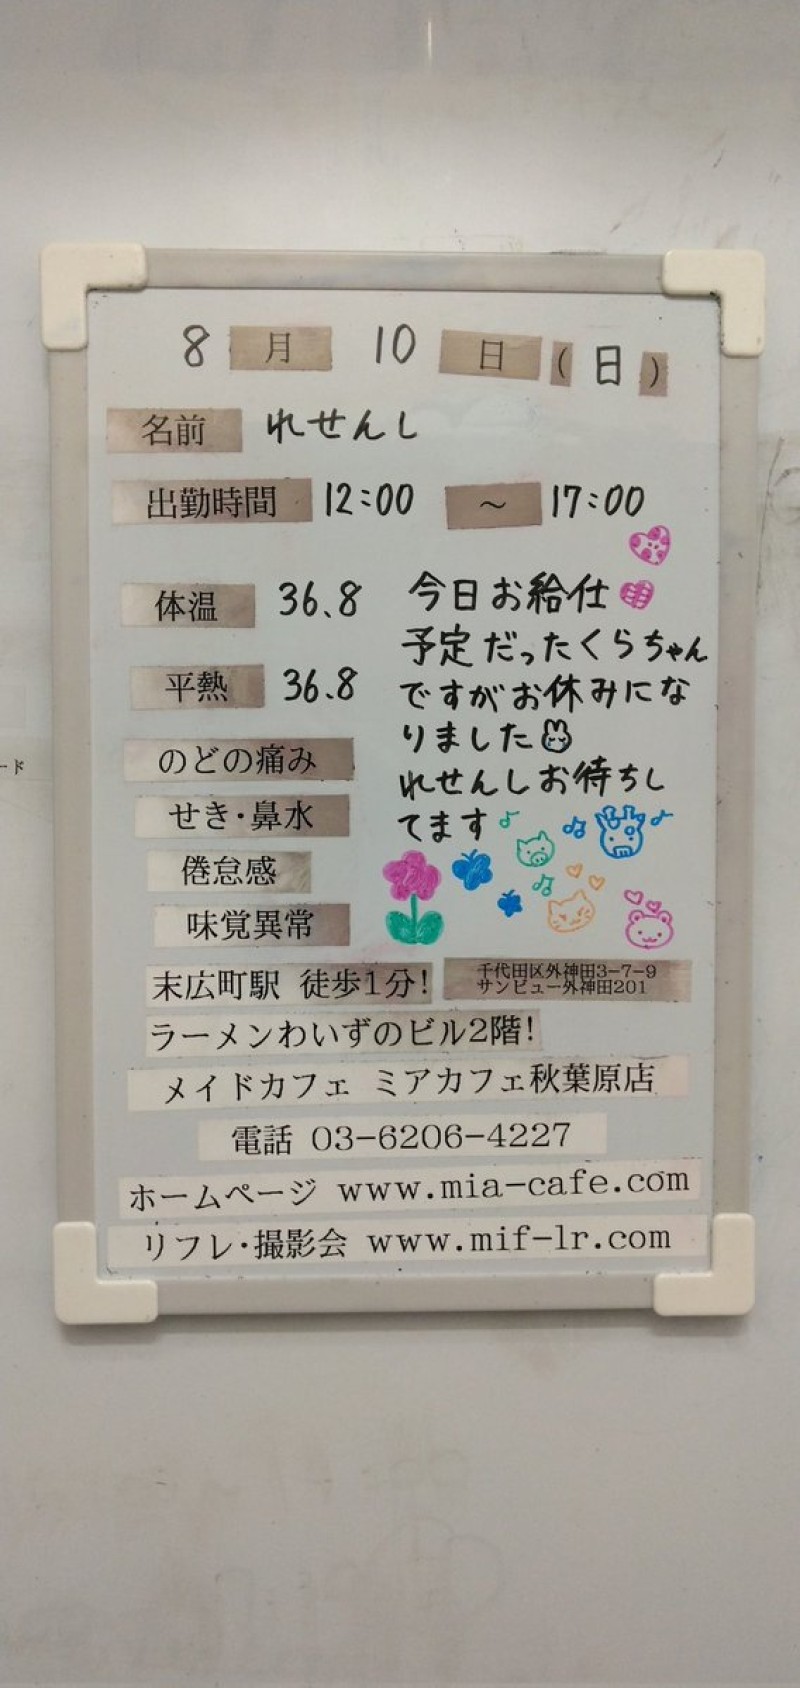 8月10日(日)
名前 れせんし
出勤時間 12:00 ~ 17:00
体温 36.8
平熱 36.8
のどの痛み
せき・鼻水
倦怠感
味覚異常
今日お給仕
予定だったくらちゃん
ですがお休みにな
りました
れせんしお待ちし
てます
末広町駅 徒歩1分!
千代田区外神田3-7-9
サンビュー外神田201
ラーメンわいずのビル2階!
メイドカフェ ミアカフェ秋葉原店
電話 03-6206-4227
ホームページ www.mia-cafe.com
リフレ・撮影会 www.mif-lr.com
ード